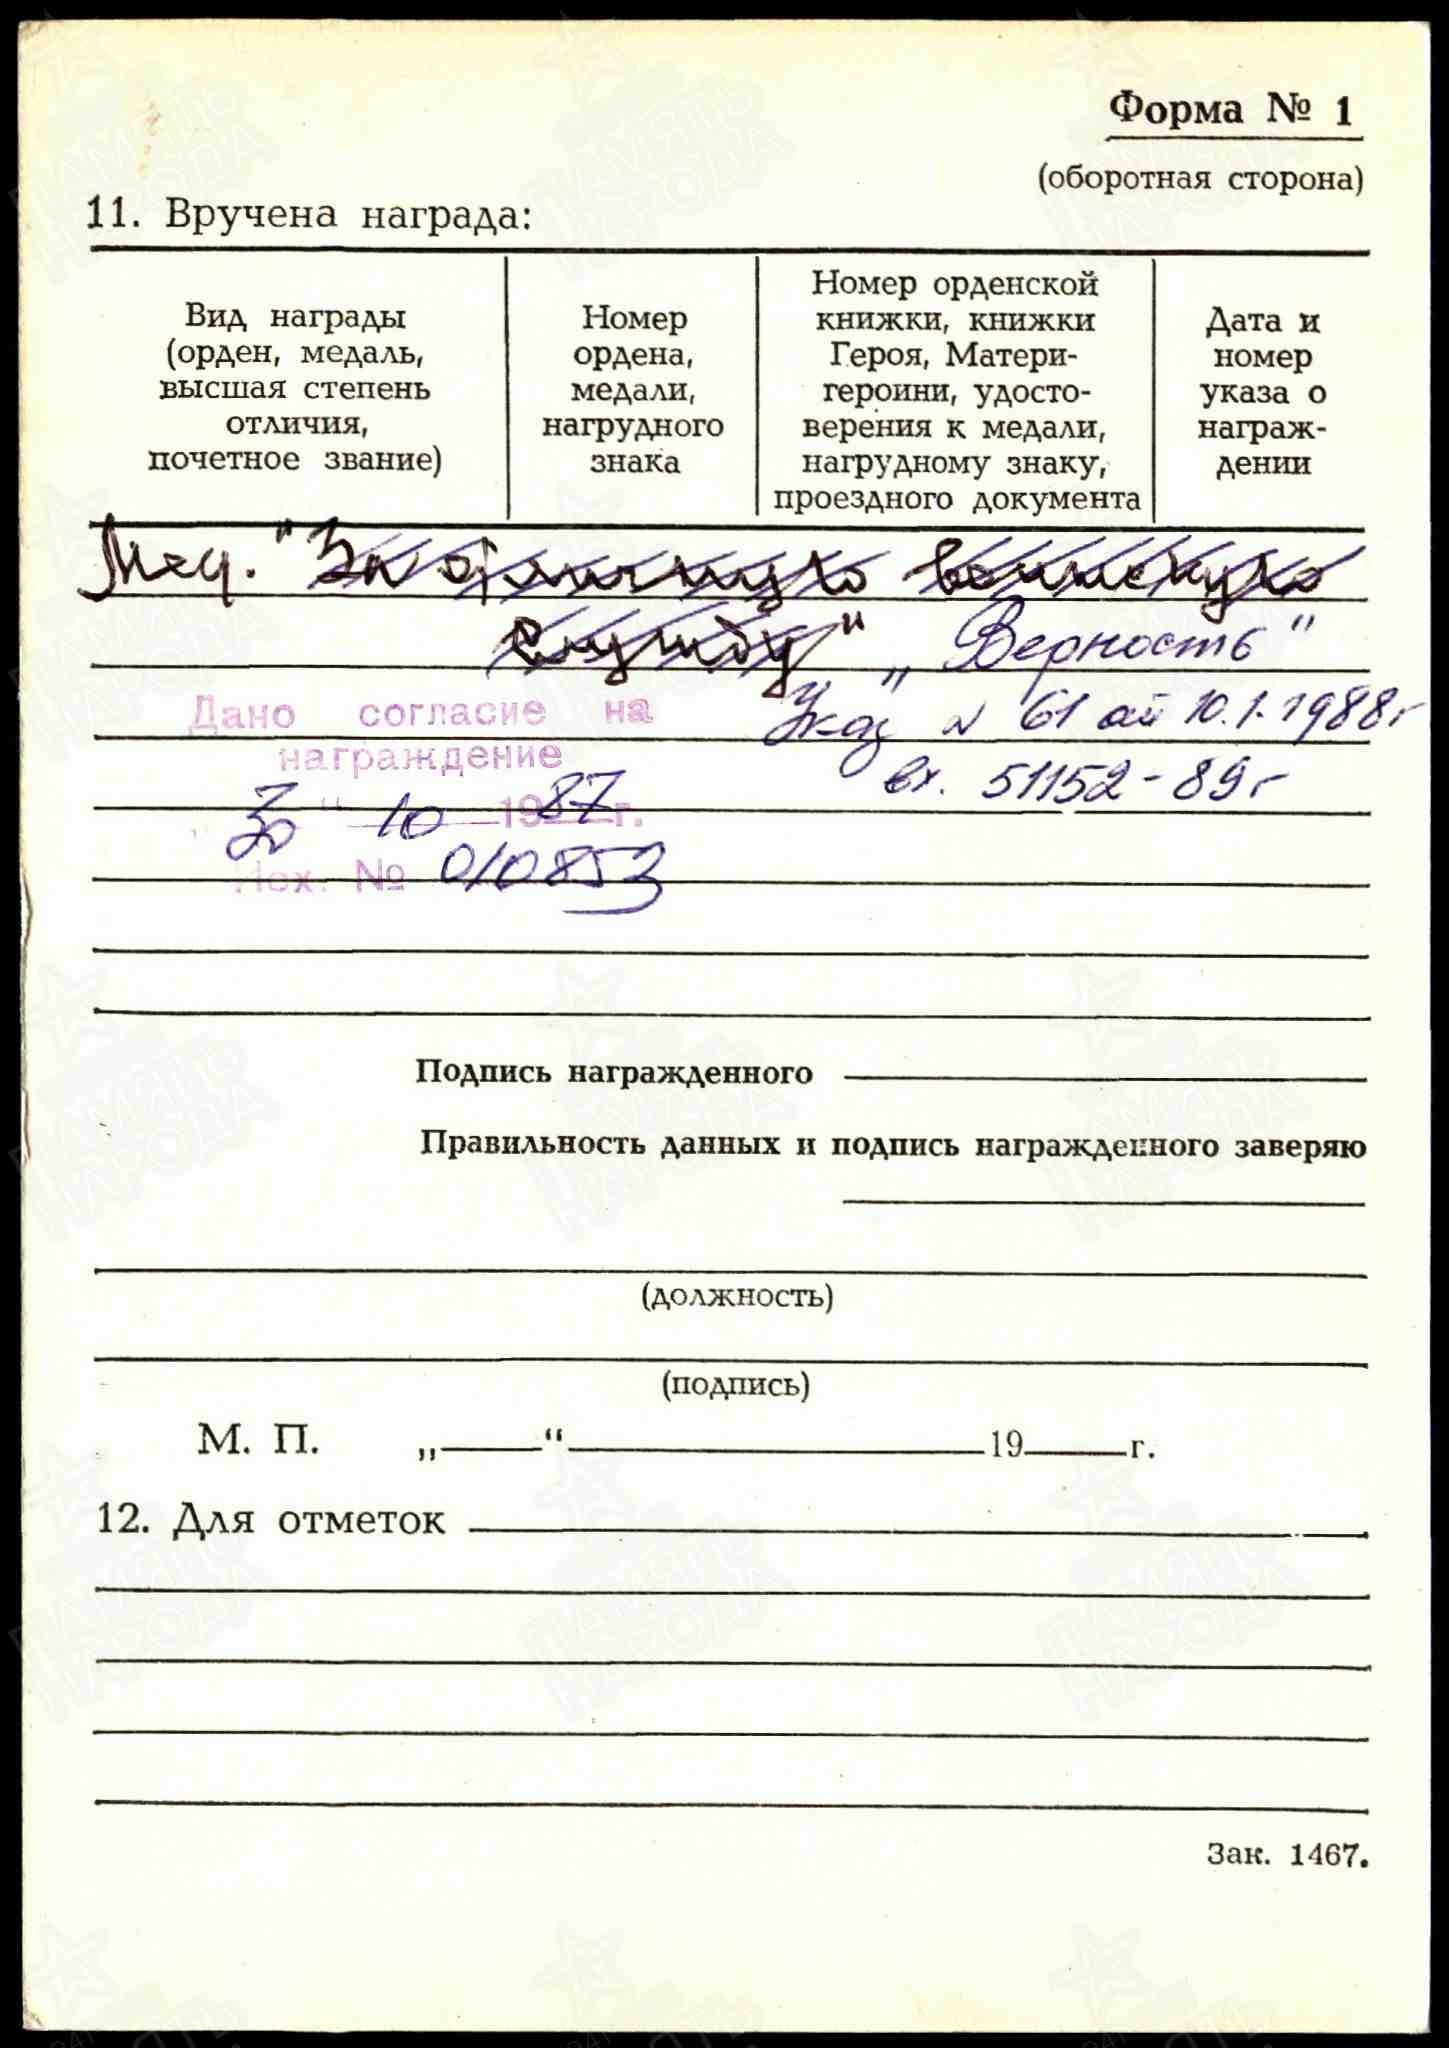 Форма № 1
(оборотная сторона)
11. Вручена награда:
Вид награды
(орден, медаль,
высшая степень
отличия,
почетное звание)
Номер
ордена,
медали,
нагрудного
знака
Номер орденской
книжки, книжки
Героя, Матери-
героини, удосто-
верения к медали,
нагрудному знаку,
проездного документа
Дата и
номер
указа о
награж-
дении
Мед. "За отличную воинскую
службу" „Верность"
Дано согласие на
награждение
Указ № 61 от 10.1.1988г
вх. 51152-89г
30 " 10 1987 г.
Исх. № 010853
Подпись награжденного
Правильность данных и подпись награжденного заверяю
(должность)
(подпись)
М. П. „ “ 19 г.
12. Для отметок
Зак. 1467.